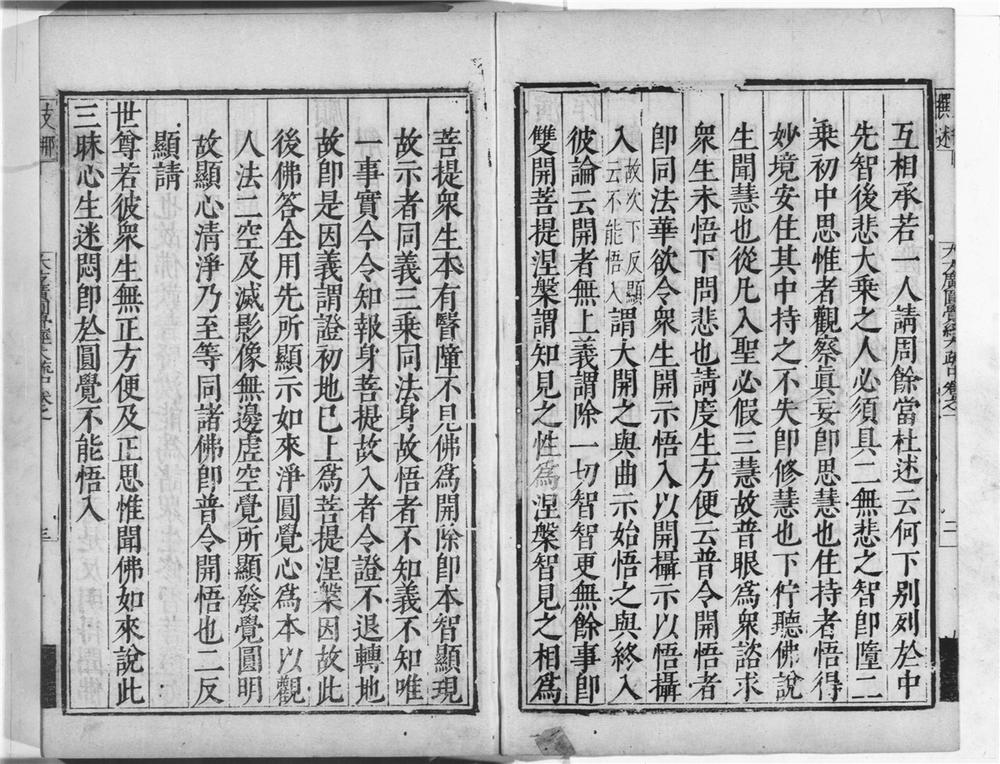 互相承若一人請周餘當杜述云何下別列於中
先智後悲大乘之人必須具二無悲之智卽墮二
乘初中思惟者觀察眞妄卽思慧也住持者悟得
妙境安住其中持之不失卽修慧也下佇聽佛說
生聞慧也從凡入聖必假三慧故普眼爲衆諮求
衆生未悟下問悲也請度生方便云普令開悟者
卽同法華欲令衆生開示悟入以開攝示以悟攝
入故次下反顯云不能悟入謂大開之與曲示始悟之與終入
彼論云開者無上義謂除一切智智更無餘事卽
雙開菩提涅槃謂知見之性爲涅槃智見之相爲
菩提衆生本有翳障不見佛爲開除卽本智顯現
故示者同義三乘同法身故悟者不知義不知唯
一事實今令知報身菩提故入者令證不退轉地
故卽是因義謂證初地已上爲菩提涅槃因故此
後佛答全用先所顯示如來淨圓覺心爲本以觀
人法二空及滅影像無邊虛空覺所顯發覺圓明
故顯心清淨乃至等同諸佛卽普令開悟也二反
顯請
世尊若彼衆生無正方便及正思惟聞佛如來說此
三昧心生迷悶卽於圓覺不能悟入
三